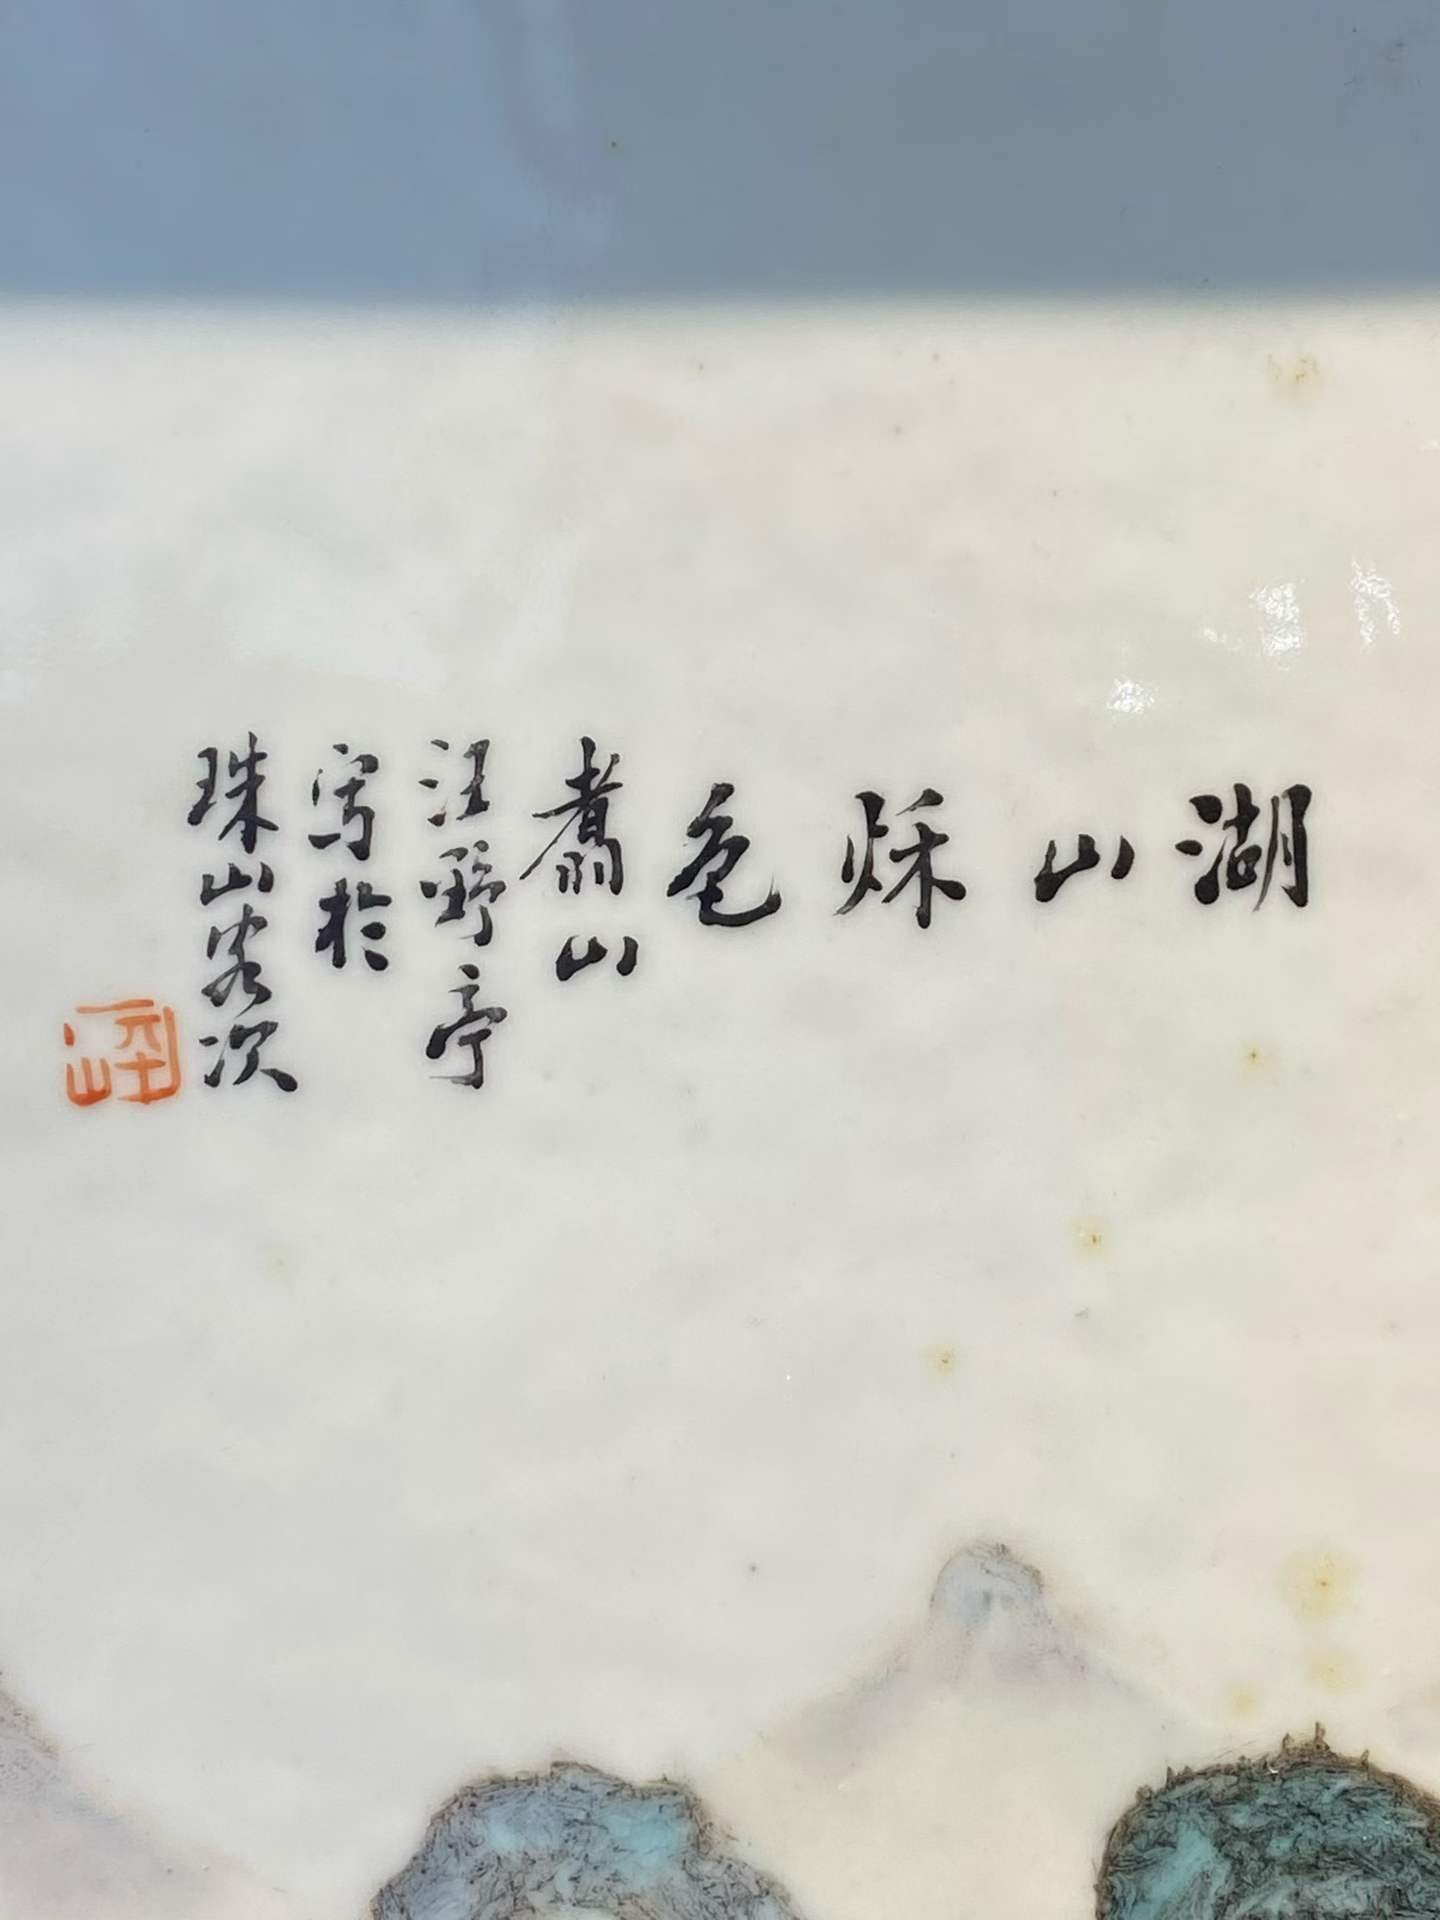 湖山秌色
翥山
汪野亭
写於
珠山客次